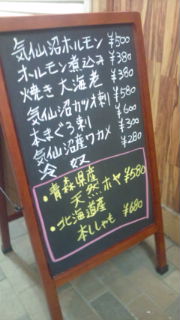 気仙沼ホルモン ¥500
ホルモン煮込み ¥380
焼き大海老 ¥380
気仙沼カツオ刺 ¥580
本まぐろ刺 ¥600
気仙沼産ワカメ ¥300
冷奴 ¥280
・青森県産
天然ホヤ ¥580
・北海道産
本ししゃも ¥680